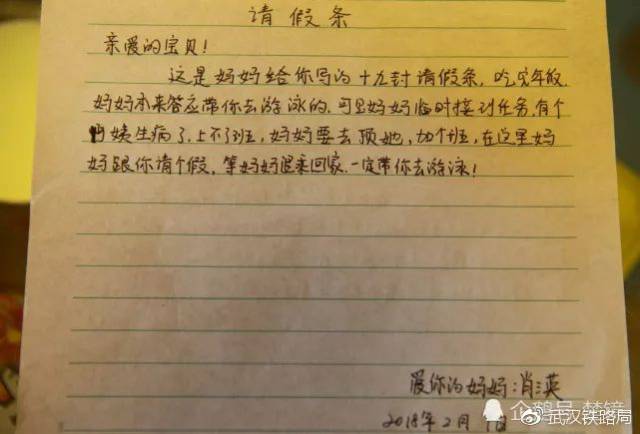 请假条
亲爱的宝贝!
这是妈妈给你写的十九封请假条,吃完年饭,
妈妈本来答应带你去游泳的,可是妈妈临时接到任务,有个
姨生病了,上不了班,妈妈要去顶她,加个班,在这里妈
妈跟你请个假,等妈妈退乘回家,一定带你去游泳!
爱你的妈妈:肖三英
2018年2月 日
企鹅号
武汉铁路局